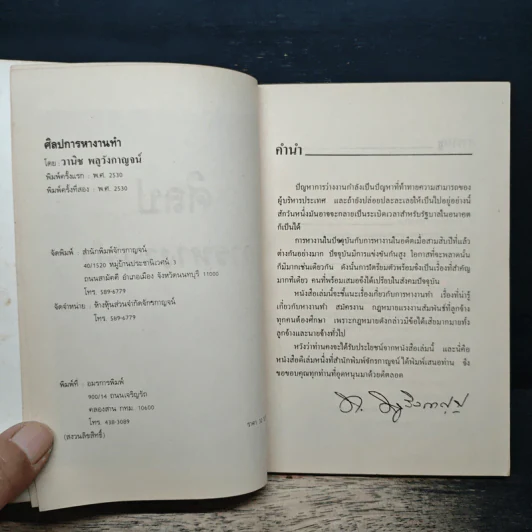 ศิลปการหางานทำ
โดย วานิช พลุวังกาญจน์
พิมพ์ครั้งแรก : พ.ศ. 2530
พิมพ์ครั้งที่สอง : พ.ศ. 2530
จัดพิมพ์ : สำนักพิมพ์จักรกาญจน์
40/1520 หมู่บ้านประชานิเวศน์ 3
ถนนสามัคคี อำเภอเมือง จังหวัดนนทบุรี 11000
โทร. 589-6779
จัดจำหน่าย : ห้างหุ้นส่วนจำกัดจักรกาญจน์
โทร. 589-6779
พิมพ์ที่ : อมรการพิมพ์
900/14 ถนนเจริญรัถ
คลองสาน กทม. 10600
โทร. 438-3089
(สงวนลิขสิทธิ์)
ราคา
คำนำ
ปัญหาการว่างงานกำลังเป็นปัญหาที่ท้าทายความสามารถของ
ผู้บริหารประเทศ และถ้ายังปล่อยปละละเลยให้เป็นไปอยู่อย่างนี้
สักวันหนึ่งมันอาจจะกลายเป็นระเบิดเวลาสำหรับรัฐบาลในอนาคต
ก็เป็นได้
การหางานในปัจจุบันกับการหางานในอดีตเมื่อสามสิบปีที่แล้ว
ต่างกันอย่างมาก ปัจจุบันมีการแข่งขันกันสูง โอกาสที่จะพลาดนั้น
ก็มีมากเช่นเดียวกัน ดังนั้นการตระเตรียมตัวพร้อมจึงเป็นเรื่องที่สำคัญ
มากทีเดียว คนที่พร้อมเสมอจึงได้เปรียบในสังคมปัจจุบัน
หนังสือเล่มนี้จะชี้แนะเรื่องเกี่ยวกับการหางานทำ เรื่องที่น่ารู้
เกี่ยวกับการหางานทำ สมัครงาน กฎหมายแรงงานสัมพันธ์ที่ลูกจ้าง
ทุกคนต้องศึกษา เพราะกฎหมายดังกล่าวมีข้อได้เสียมากมายทั้ง
ลูกจ้างและนายจ้างทั่วไป
หวังว่าท่านคงจะได้รับประโยชน์จากหนังสือเล่มนี้ และนี่คือ
หนังสือดีเล่มหนึ่งที่สำนักพิมพ์จักรกาญจน์ ได้พิมพ์เสนอท่าน จึง
ขอขอบคุณทุกท่านที่อุดหนุนมาด้วยดีตลอด